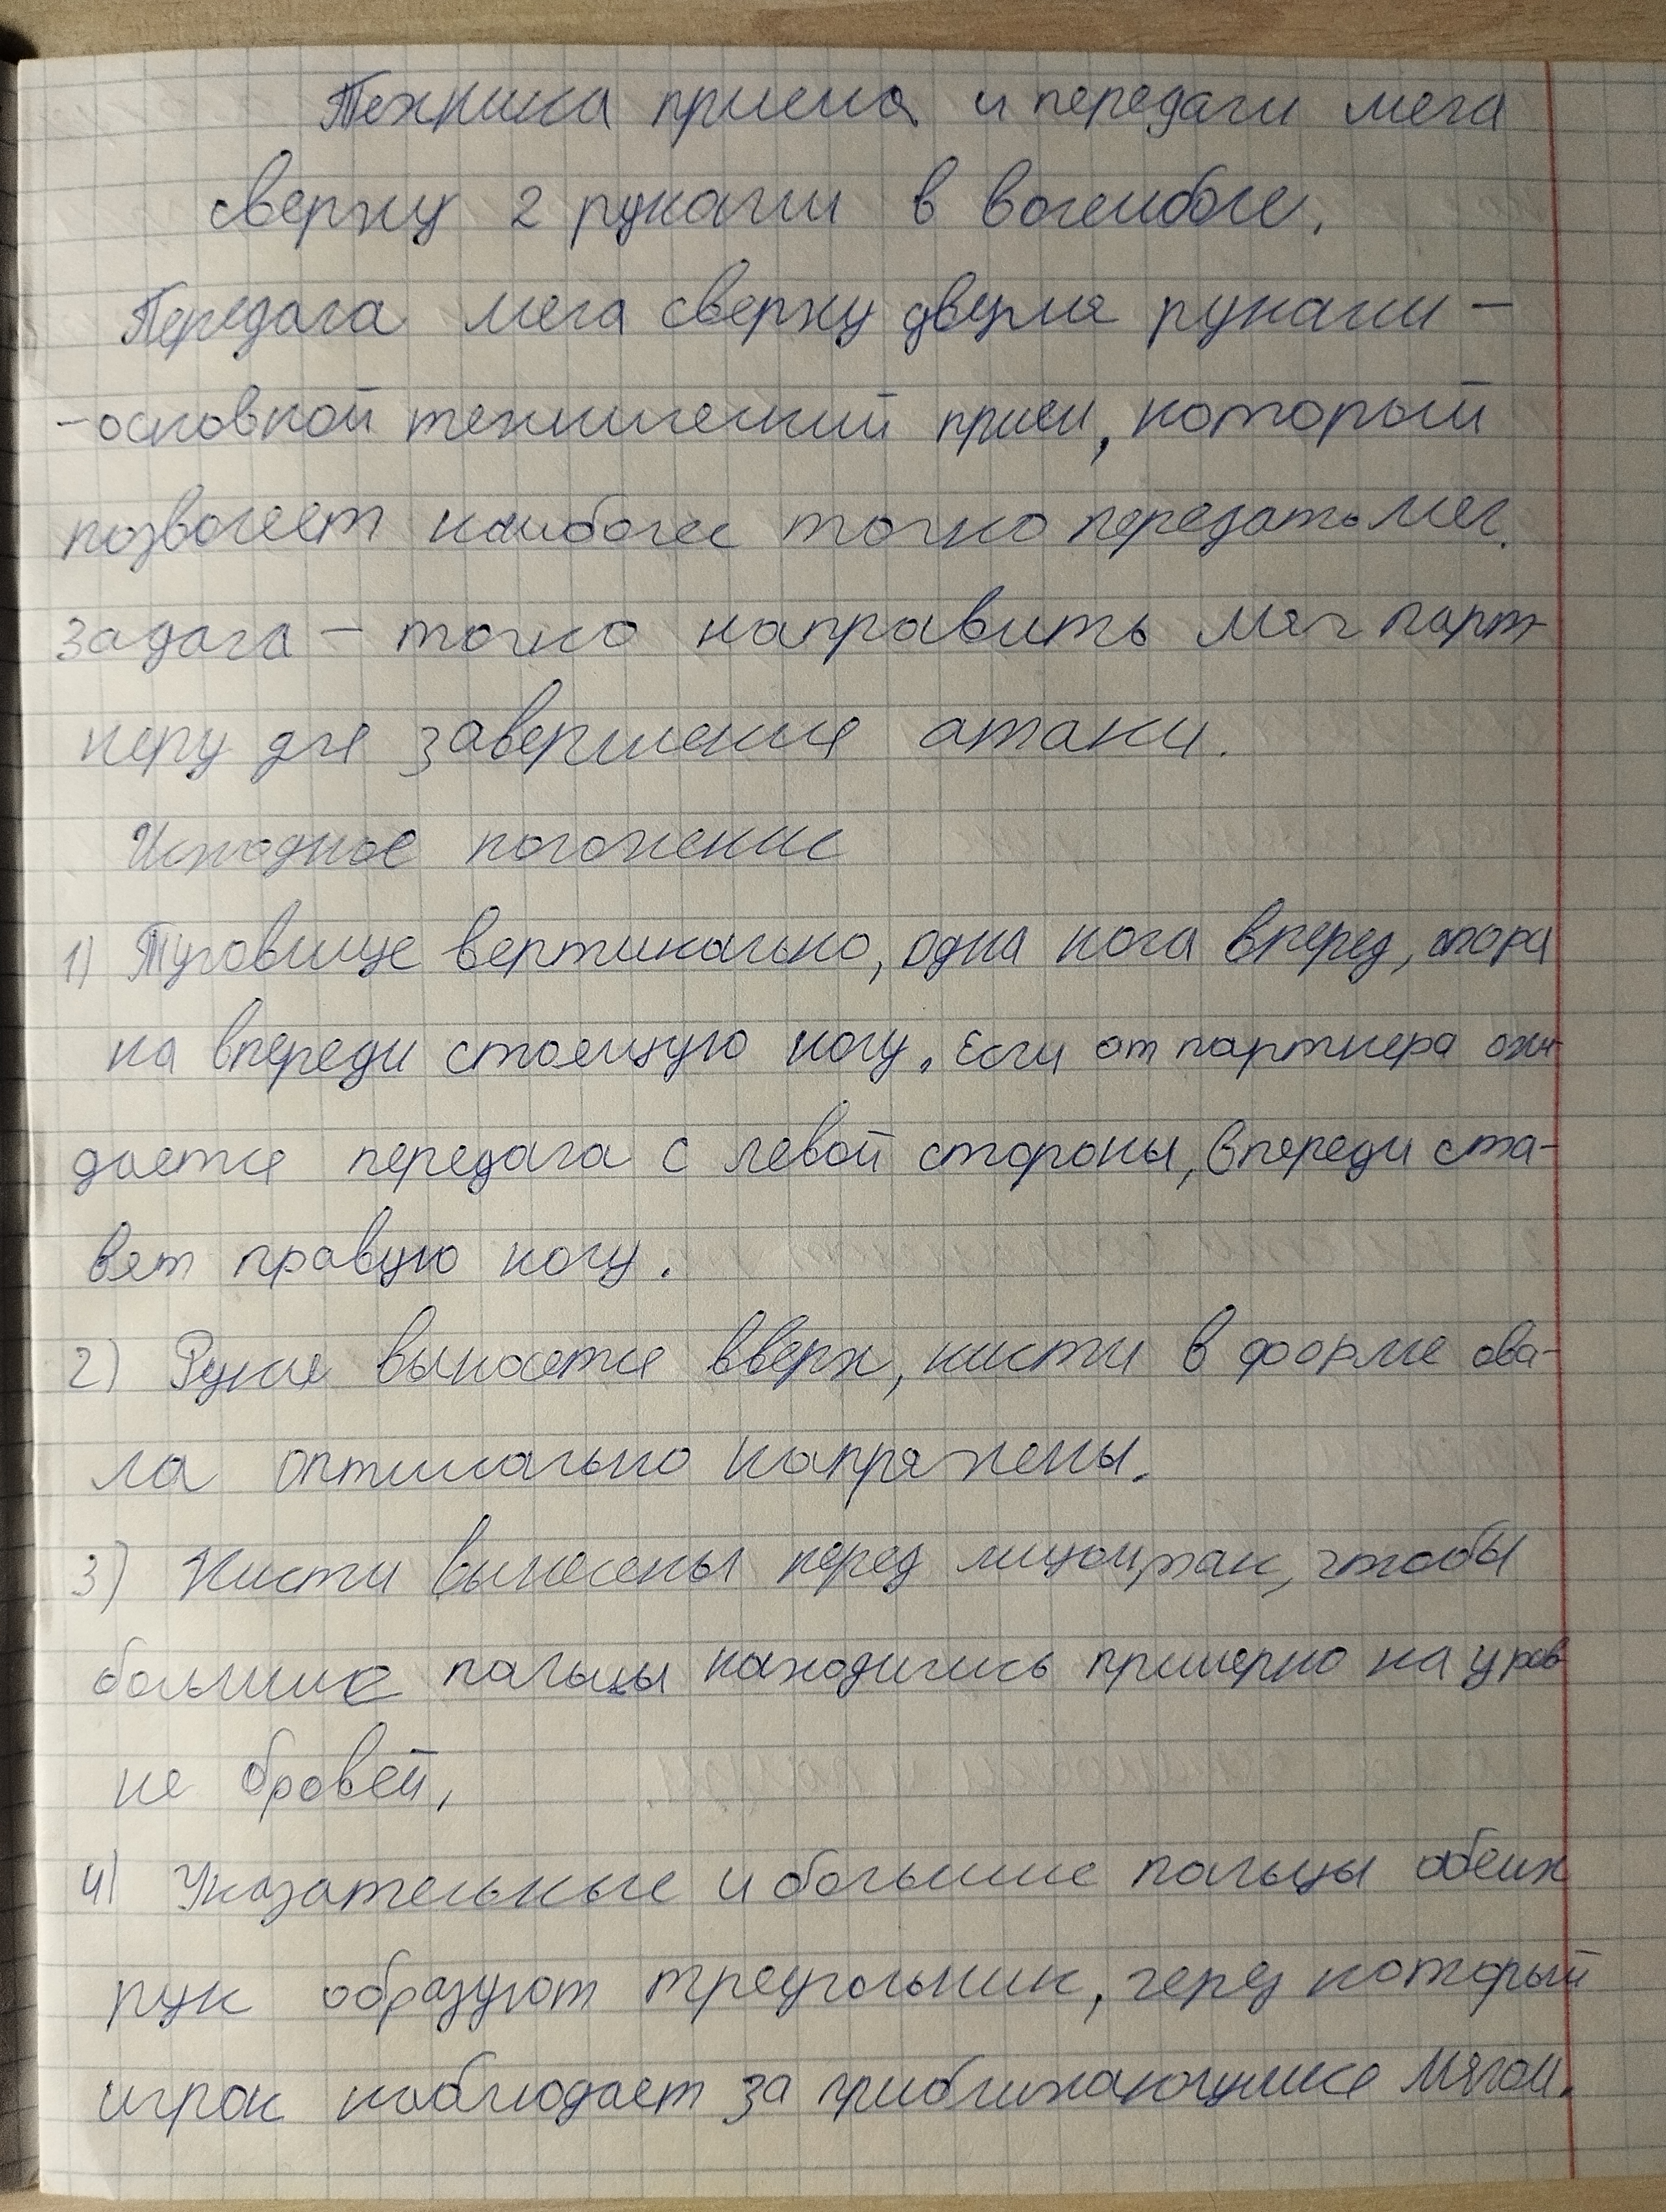 Техника приема и передачи мяча
сверху 2 руками в волейболе.
Передача мяча сверху двумя руками -
-основной технический прием, который
позволяет наиболее точно передать мяч.
Задача - точно направить мяч парт-
неру для завершения атаки.
Исходное положение
1) Туловище вертикально, одна нога вперед, опора
на впереди стоящую ногу. Если от партнера ожи-
дается передача с левой стороны, впереди ста-
вят правую ногу.
2) Руки выносятся вверх, кисти в форме ова-
ла оптимально напряжены.
3) Кисти вынесены перед лицом, так, чтобы
большие пальцы находились примерно на уров
не бровей,
4) Указательные и большие пальцы обеих
рук образуют треугольник, через который
игрок наблюдает за приближающимся мячом.